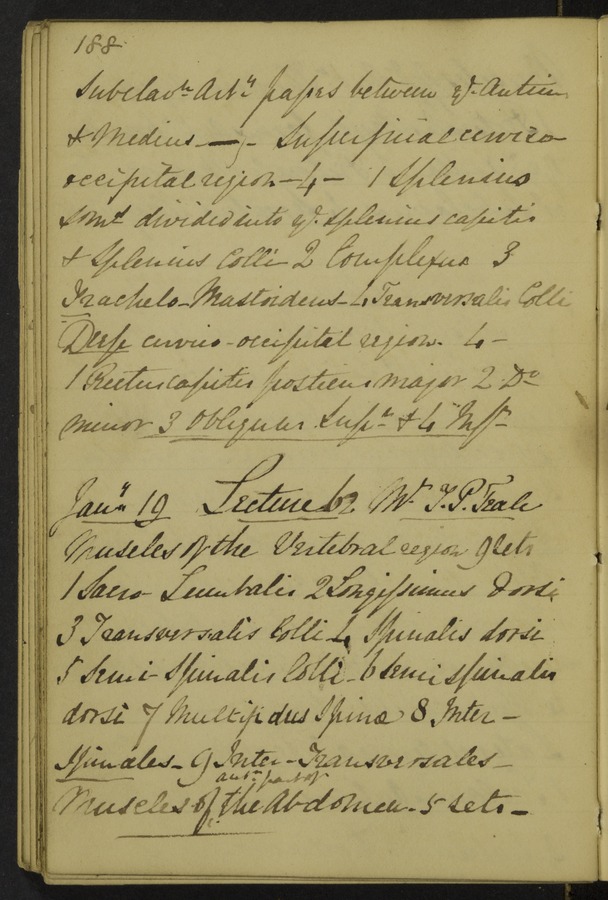 188
Subclavn Arty passes between ye. Anticus
& Medius — ; - Superficial cervico
occipital region - 4 - 1 Splenius
somt divided into ye. splenius capitis
& Splenius Colli 2 Complexus 3
Trachelo-Mastoideus - 4 Transversalis Colli
Deep cervico-occipital region - 4 -
1 Rectus capitis posticus major 2 Do
minor 3 Obliquus Supr & 4 Infr
Jany 19 Lecture 62 Mr T. P. Teale
Muscles of the Vertebral region 9 sets
1 Sacro Lumbalis 2 Longissimus dorsi
3 Transversalis Colli 4 Spinalis dorsi
5 Semi-Spinalis Colli - 6 Semi spinalis
dorsi 7 Multifidus Spinæ 8 Inter-
spinales - 9 Inter-Transversales -
antr part of
Muscles of the Abdomen - 5 sets -